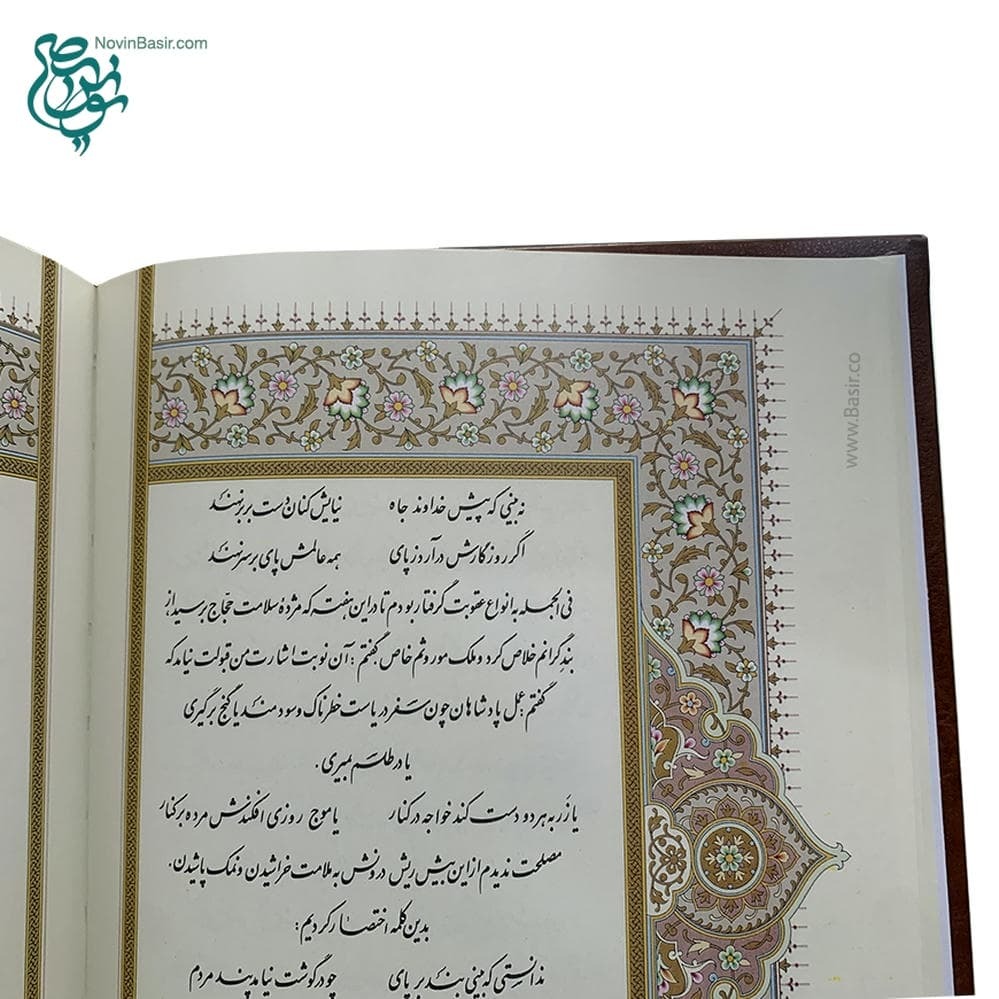 NovinBasir.com
www.Basir.co
نه بینی که پیش خداوند جاه نیایش کنان دست بر بر نهند
اگر روزگارش درآرد ز پای همه عالمش پای بر سر نهند
فی الجمله به انواع عقوبت گرفتار بودم تا در این هفته که مژدهٔ سلامت حجّاج برسید از
بندِ گرانم خلاص کرد و ملک موروثم خاص گفتم: آن نوبت اشارت من قبولت نیامد که
گفتم: عمل پادشاهان چون سفر دریاست خطرناک و سودمند یا گنج برگیری
یا در طلسم بمیری.
یا زَر به هر دو دست کند خواجه در کنار یا موج روزی افکندش مرده بر کنار
مصلحت ندیدم از این بیش ریش درونش به ملامت خراشیدن و نمک پاشیدن.
بدین کلمه اختصار کردیم:
ندانستی که بینی بند بر پای چو در گوشت نیامد پند مردم